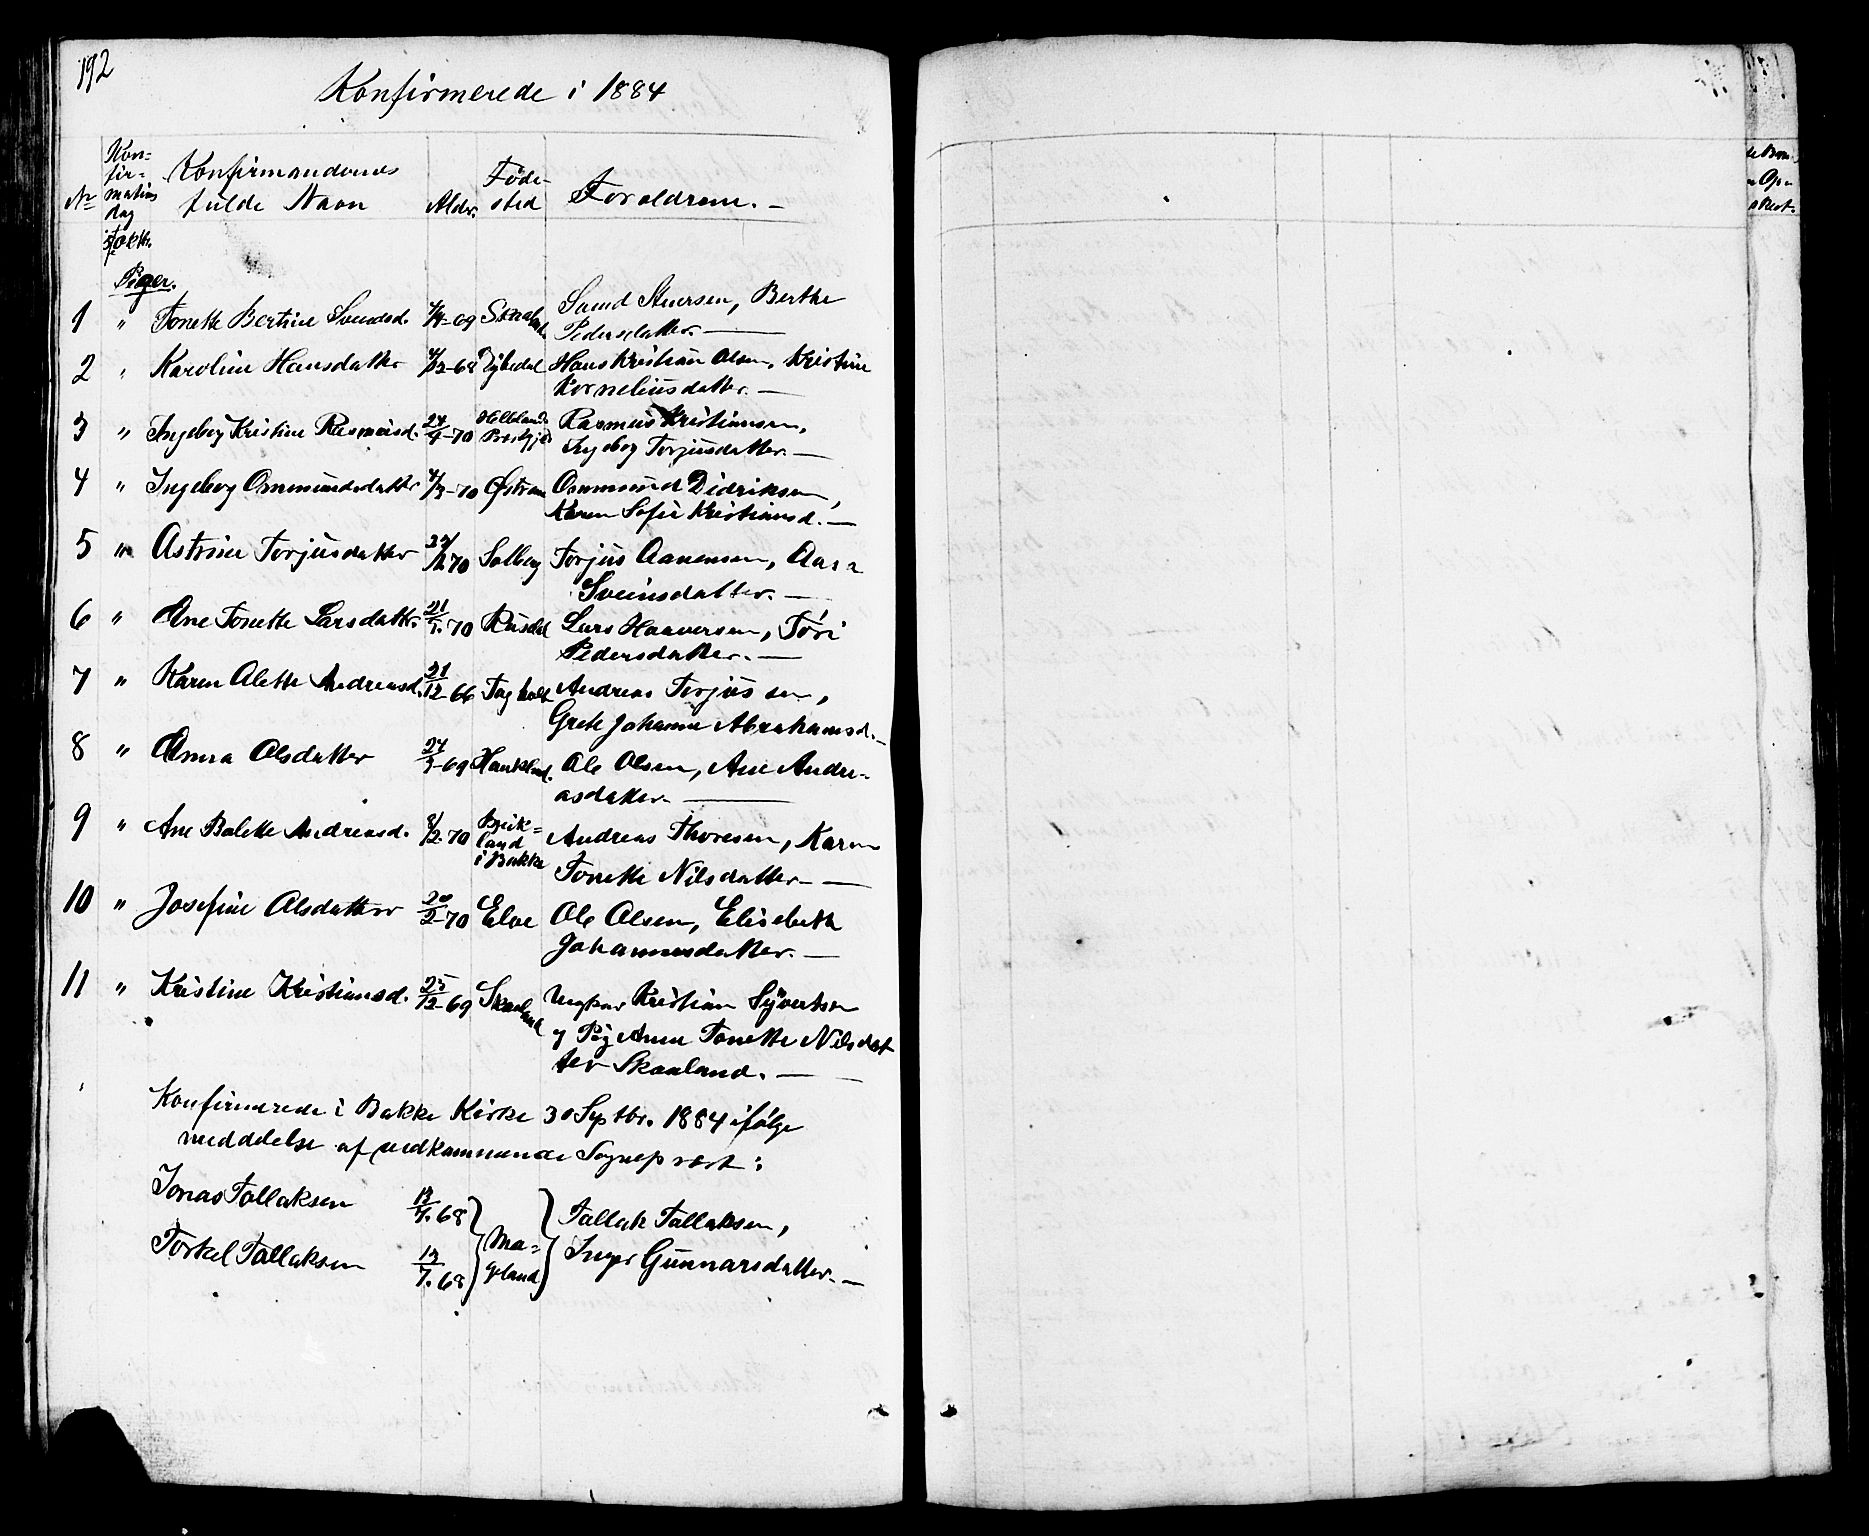 192
Konfirmerede i 1884
No
Kon-
fir-
mations
dag
Konfirmandens
fulde Navn
Alder.
Føde-
sted
Forældrene. —
5 Okbr.
Piger.
1 " Tonette Bertine Svendsd. 4/4-69 Skaaland Svend Siversen, Berthe
Pedersdatter. —
2 " Karoline Hansdatter 4/12-68 Hans Kristian Olsen, Kristine
Korneliusdatter. —
3 " Ingeborg Kristine Rasmusd. 24/4-70 Hellelands Præstgjd Rasmus Kristiansen,
Ingeborg Torjusdatter. —
4 " Ingeborg Ommundsdatter 4/3-70 Østrem Ommund Didriksen,
Karen Sofie Kristiansd. —
5 " Astrine Torjusdatter 70 Solberg Torjus Aanensen, Aasa
Sveinsdatter. —
6 " Ane Tonette Larsdatter. 21/1. 70 Rusdal Lars Haaversen, Tøri
Pedersdatter. —
7 " Karen Alette Andreasd. 21/12-66 Andreas Torjussen,
Grete Johanne Abrahamsd. —
8 " Anna Olsdatter 24/3-69 Haukland. Ole Olsen, Ane Andre-
asdatter. —
9 " Ane Bolette Andreasd. 8/2-70 Birk-
land
i Bakke Andreas Thoresen, Karen
Tonette Nilsdatter —
10 " Josefine Olsdatter 20/2-70 Elve Ole Olsen, Elisabeth
Johannesdatter. —
11 " Kristine Kristiansd. 25/12-69 Skaaland Ungkar Kristian Syvertsen
og Pig Anne Tonette Nilsdat
ter Skaaland. —
Konfirmerede i Bakke Kirke 30 Septbr. 1884 ifølge
meddelelse af vedkommende Sogneprest:
Jonas Tallaksen 13/7. 68
Torkel Tallaksen 13/7. 68
Ma-
geland
Tallak Tallaksen,
Inger Gunnarsdatter. —